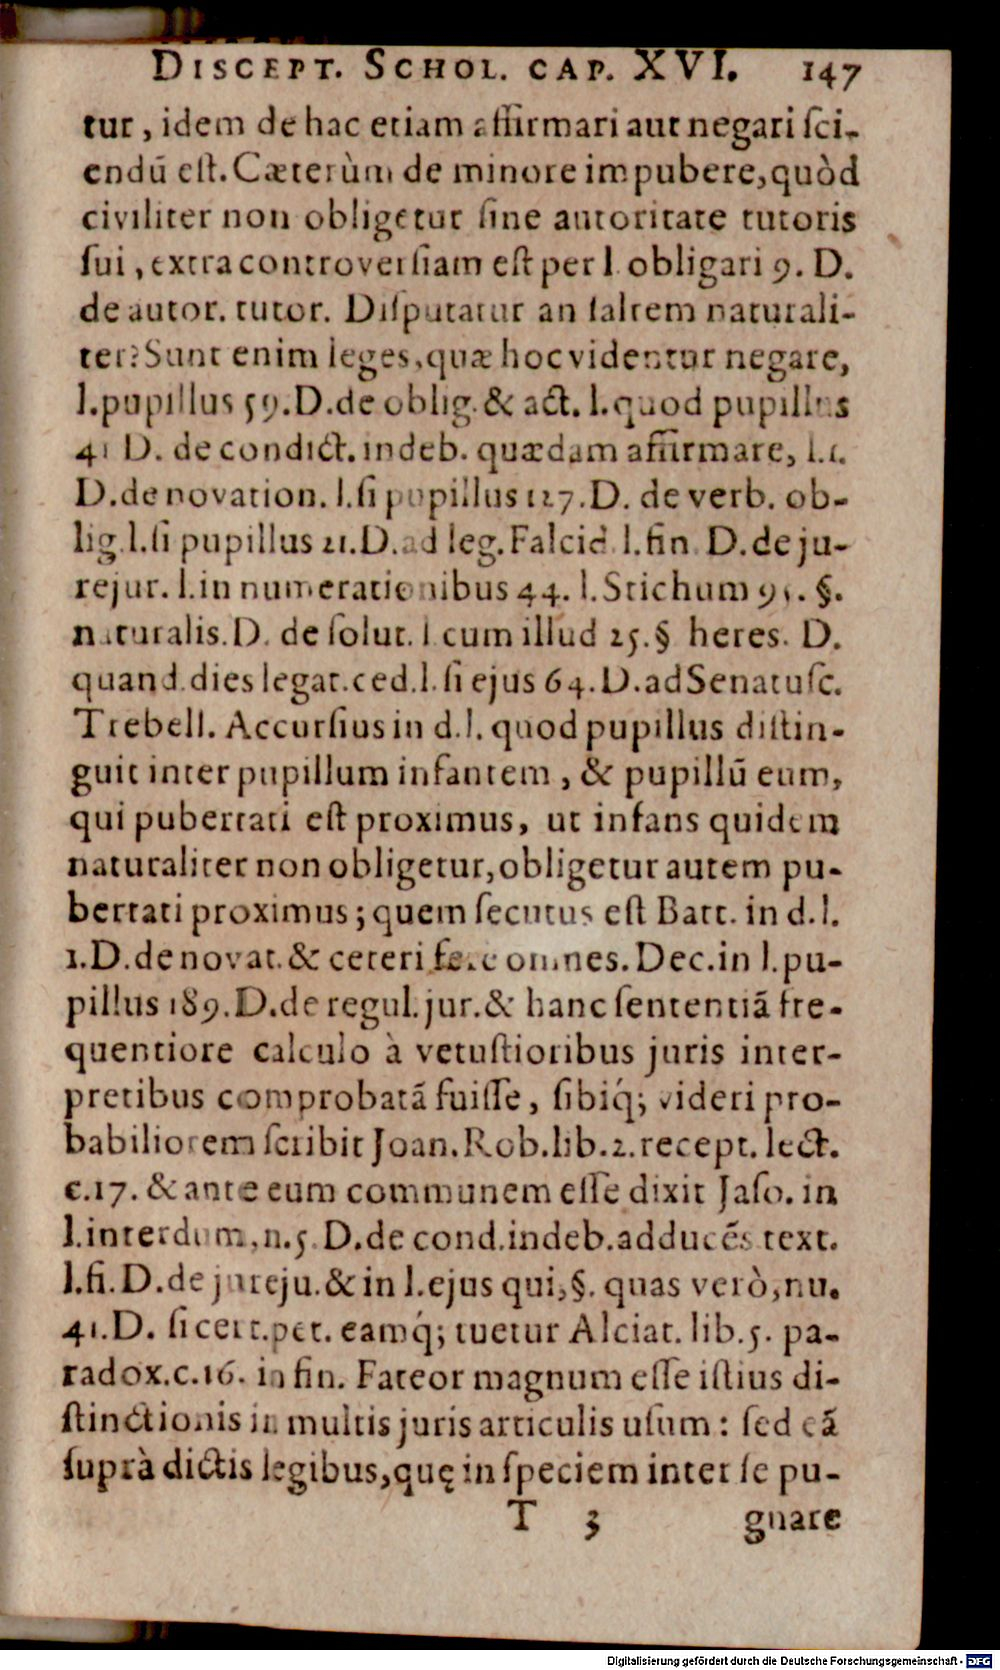 DISCEPT. SCHOL. CAP. XVI. 147
tur, idem de hac etiam affirmari aut negari ſci-
endũ eſt. Cæterùm de minore impubere, quòd
civiliter non obligetur ſine autoritate tutoris
ſui, extra controverſiam eſt per l. obligari 9. D.
de autor. tutor. Diſputatur an ſaltem naturali-
ter? Sunt enim leges, quæ hoc videntur negare,
l. pupillus 59. D. de oblig. & act. l. quod pupillus
41 D. de condict. indeb. quædam affirmare, l. 1.
D. de novation. l. ſi pupillus 127. D. de verb. ob-
lig. l. ſi pupillus 21. D. ad leg. Falcid. l. fin. D. de ju-
rejur. l. in numerationibus 44. l. Stichum 95. §.
naturalis. D. de ſolut. l cum illud 25. § heres. D.
quand. dies legat. ced. l. ſi ejus 64. D. ad Senatuſc.
Trebell. Accurſius in d. l. quod pupillus diſtin-
guit inter pupillum infantem, & pupillũ eum,
qui pubertati eſt proximus, ut infans quidem
naturaliter non obligetur, obligetur autem pu-
bertati proximus; quem ſecutus eſt Bart. in d. l.
1. D. de novat. & ceteri fere omnes. Dec. in l. pu-
pillus 189. D. de regul. jur. & hanc ſententiã fre-
quentiore calculo à vetuſtioribus juris inter-
pretibus comprobatã fuiſſe, ſibiq́; videri pro-
babiliorem ſcribit Joan. Rob. lib. 2. recept. lect.
c. 17. & ante eum communem eſſe dixit Jaſo. in
l. interdum, n. 5. D. de cond. indeb. adducẽs text.
l. fi. D. de jureju. & in l. ejus qui, §. quas verò, nu.
41. D. ſi cert. pet. eamq́; tuetur Alciat. lib. 5. pa-
radox. c. 16. in fin. Fateor magnum eſſe iſtius di-
ſtinctionis in multis juris articulis uſum: ſed eã
ſuprà dictis legibus, quę in ſpeciem inter ſe pu-
T 3 gnare
Digitalisierung gefördert durch die Deutsche Forschungsgemeinschaft - DFG